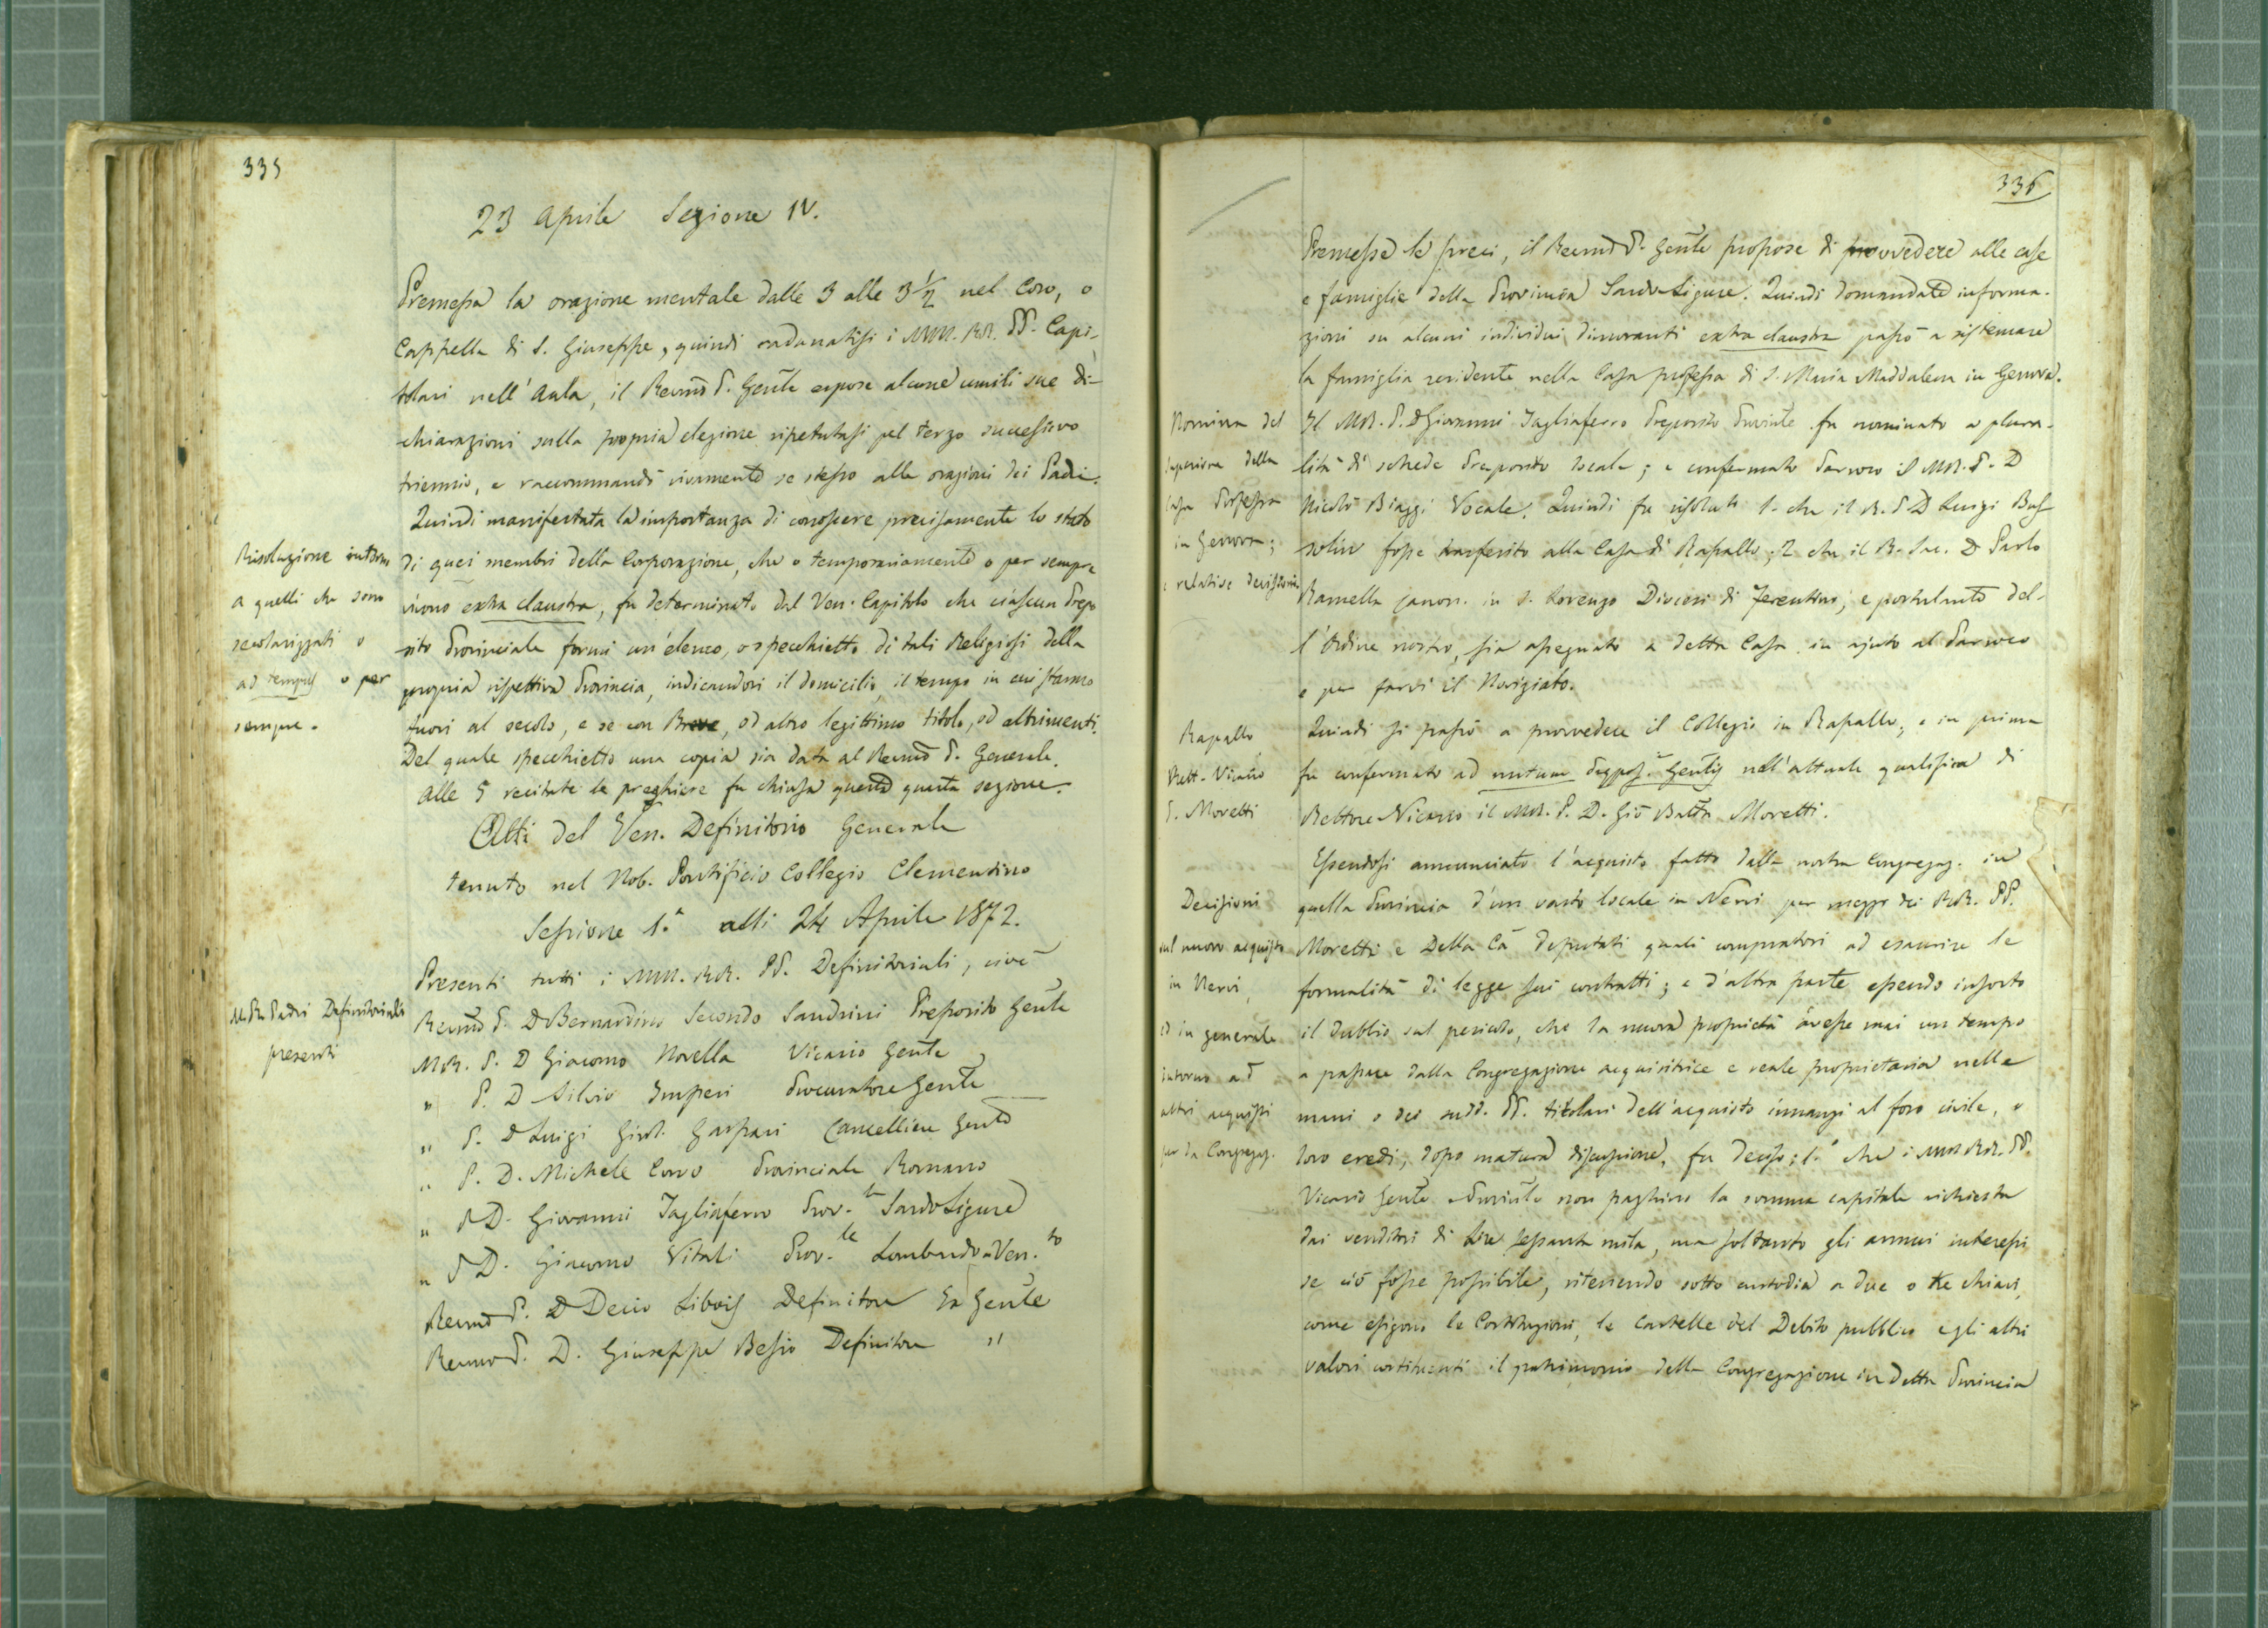 335
23 Aprile Sezione IV.
Premessa la orazione mentale dalle 3 alle 3 1/2 nel Coro, o
Cappella di S. Giuseppe, quindi radunatisi i MM. RR. PP. Capi-
tolari nell'Aula, il Revmo P. Genle espose alcune umili sue di-
chiarazioni sulla propria elezione ripetutasi pel terzo successivo
triennio, e raccommandò vivamente se stesso alle orazioni dei Padri.
Quindi manifestata la importanza di conoscere precisamente lo stato
di quei membri della Corporazione, che o temporariamente o per sempre
vivono extra claustra, fu determinato dal Ven. Capitolo che ciascun Prepo
sito Provinciale formi un'elenco, o specchietto di tali Religiosi della
propria rispettiva Provincia, indicandovi il domicilio, il tempo in cui stanno
fuori al secolo, e se con Breve, od altro legittimo titolo, od altrimenti.
Del quale specchietto una copia sia data al Revmo P. Generale.
Alle 5 recitate le preghiere fu chiusa questa quarta sezione.
Risoluzione intorno
a quelli che sono
secolarizzati o
ad tempus o per
sempre.
Atti del Ven. Definitorio Generale
tenuto nel Nob. Pontificio Collegio Clementino
Sessione 1.a alli 24 Aprile 1872.
Presenti tutti i MM. RR. PP. Definitoriali, cioè
M. R. Padri Definitoriali
presenti
Revmo P. D Bernardino Secondo Sandrini Preposito Genle
M.R. P. D Giacomo Novella Vicario Genle
" P. D Silvio Imperi Procuratore Genle
" P. D Luigi Girol. Gaspari Cancelliere Genle
" P. D. Michele Corvo Provinciale Romano
" P D. Giovanni Tagliaferro Prov.le Sardo Ligure
" P D. Giacomo Vitali Prov.le Lombardo-Ven.to
Revmo P. D Decio Libois Definitore Ex Genle
Revmo P. D. Giuseppe Besio Definitore "
336
Premesse le preci, il Revmo P. Genle propose di provvedere alle case
e famiglie della Provincia Sardo-Ligure. Quindi domandate informa-
zioni su alcuni individui dimoranti extra claustra passò a sistemare
la famiglia residente nella Casa professa di S. Maria Maddalena in Genova.
Il M.R. P. D Giovanni Tagliaferro Preposito Provinle fu nominato a plura-
lità di schede Preposito locale; e confermato Parroco il M.R. P. D
Nicolò Biaggi Vocale. Quindi fu risoluto 1. che il R. P. D Luigi Bas
solini fosse trasferito alla Casa di Rapallo; 2 che il R. Sac. D Paolo
Ramella canon. in S. Lorenzo Diocesi di Ferentino, e postulante del-
l'Ordine nostro, sia assegnato a detta Casa in ajuto al Parroco
e per farvi il Noviziato.
Nomina del
Superiore della
Casa Professa
in Genova;
e relative decisioni
Quindi si passò a provvedere il Collegio in Rapallo, e in prima
fu confermato ad nutum Genlis nell'attuale qualifica di
Rettore Vicario il M.R. P. D. Gio Batta Moretti.
Rapallo
Rett. Vicario
P. Moretti
Essendosi annunciato l'acquisto fatto dalla nostra Congregaz. in
quella Provincia d'un vasto locale in Nervi per mezzo dei RR. PP.
Moretti e Della Cà deputati quali compratori ad esaurire le
formalità di legge sui contratti; e d'altra parte essendo insorto
il dubbio sul pericolo, che la nuova proprietà avesse mai un tempo
a passare dalla Congregazione acquisitrice e reale proprietaria nelle
mani o dei sudd. PP. titolari dell'acquisto innanzi al foro civile, o
loro eredi, dopo matura discussione, fu deciso; 1.o che i MM. RR. PP.
Vicario Genle e Provinle non paghino la somma capitale richiesta
dai venditori di Lire sessanta mila, ma soltanto gli annui interessi
se ciò fosse possibile, ritenendo sotto custodia a due o tre chiavi,
come esigono le Costituzioni, le cartelle del Debito pubblico e gli altri
valori costituenti il patrimonio della Congregazione in detta Provincia
Decisioni
sul nuovo acquisto
in Nervi,
ed in generale
intorno ad
altri acquisti
per la Congregaz.